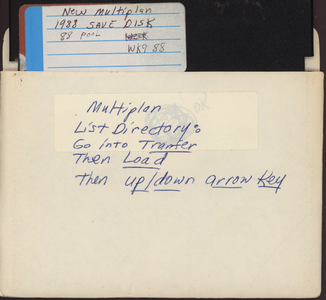 New Multiplan
1988 SAVE DISK
88 POOL
WK9 88
Multiplan
List Directory:
Go into Tranfer
Then Load
Then up/down arrow key